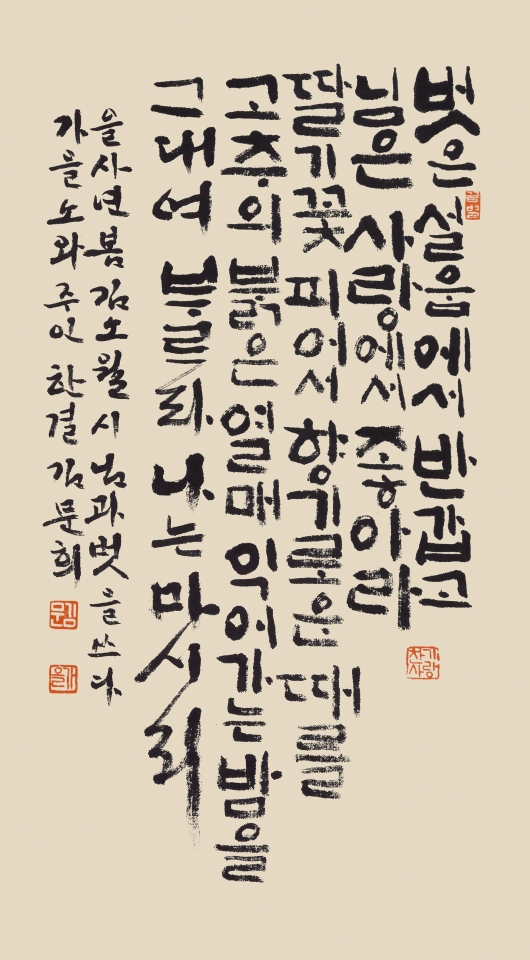 벗은 설움에서 반갑고
님은 사랑에서 좋아라
딸기꽃 피어서 향기로운 때를
고추의 붉은 열매 익어가는 밤을
그대여 부르라 나는 마시리
을사년 봄 김소월 시 님과 벗을 쓰다
주인 한결 김문희